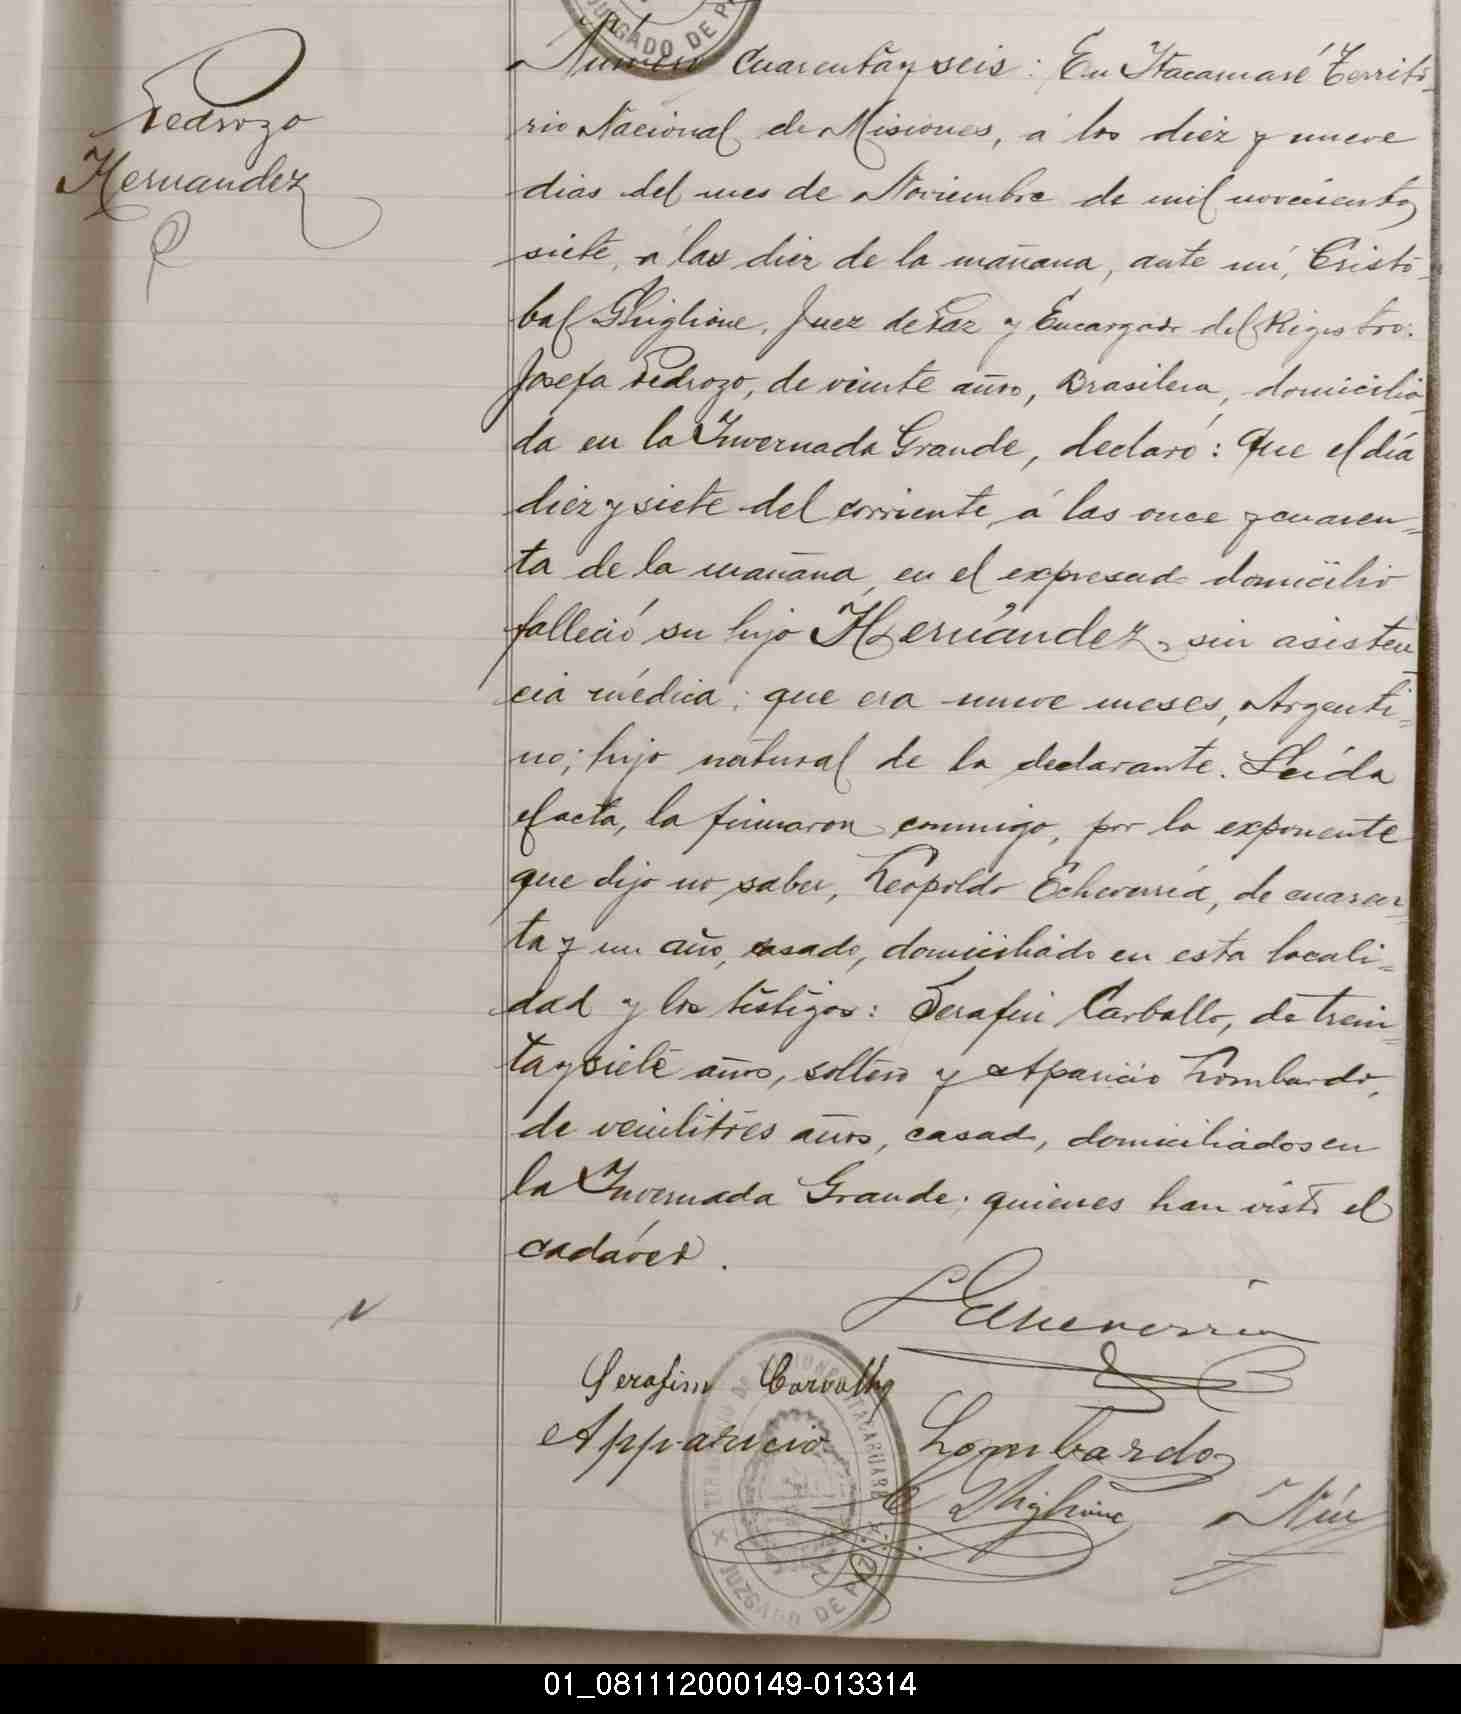 JUZGADO DE P
Pedrozo
Hernandez
Número cuarenta y seis: En Itacaruaré Territo-
rio Nacional de Misiones, á los diez y nueve
dias del mes de Noviembre de mil novecientos
siete, á las diez de la mañana, ante mí, Cristó-
bal Ghiglione, Juez de Paz y Encargado del Registro:
Josefa Pedrozo, de veinte años, Brasilera, domicilia-
da en la Invernada Grande, declaró: Que el día
diez y siete del corriente, á las once y cuaren-
ta de la mañana, en el expresado domicilio
falleció su hijo Hernández, sin asisten-
cia médica; que era nueve meses, Argenti-
no; hijo natural de la declarante. Leída
el acta, la firmaron conmigo, por la exponente
que dijo no saber, Leopoldo Echeverría, de cuaren-
ta y un año, casado, domiciliado en esta locali-
dad y los testigos: Serafin Carballo, de trein-
ta y siete años, soltero y Aparicio Lombardo,
de veintitres años, casado, domiciliados en
la Invernada Grande; quienes han visto el
cadáver.
L Echeverria
Serafim Carvalho
Apparicio Lombardo
C Ghiglione
TERRITORIO DE MISIONES ITACARUARÉ
JUZGADO DE PAZ
01_081112000149-013314